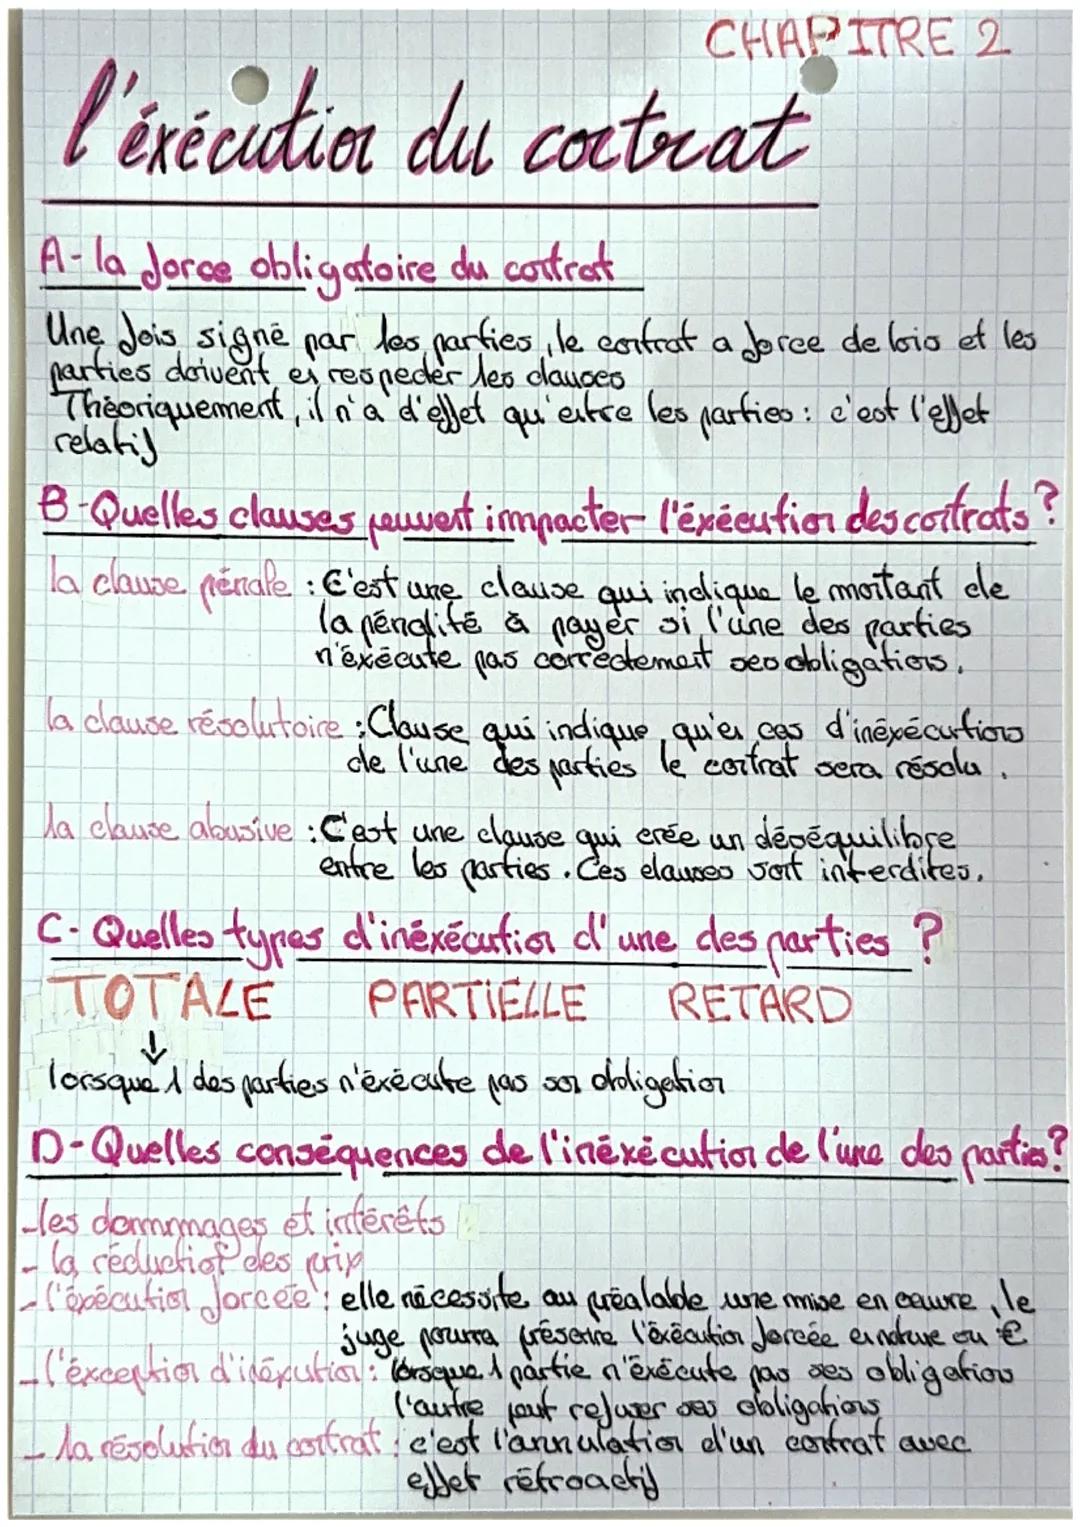 CHAPITRE 2
l'éxécution du contrat
A- la force obligatoire du contrat
Une fois signé par les parties, le contrat a force de lois et les
parties doivent en respecter les clauses
Théoriquement, il n'a d'effet qu'entre les parties : c'est l'effet
relatif
B-Quelles clauses peuvent impacter l'éxécution des contrats ?
la clause pénale : C'est une clause qui indique le montant de
la pénalité à payer si l'une des parties
n'éxécute pas correctement ses obligations.
la clause résolutoire : Clause qui indique qu'en cas d'inéxécutions
de l'une des parties le contrat sera résolu.
la clause abusive : C'est une clause qui crée un déséquilibre
entre les parties. Ces clauses sont interdites.
C- Quelles types d'inéxécution d'une des parties ?
TOTALE PARTIELLE RETARD
↓
lorsque 1 des parties n'éxécute pas son obligation
D-Quelles conséquences de l'inéxécution de l'une des parties?
-les dommages et intérêts
- la réduction des prix
- l'éxécution forcée : elle nécessite au préalable une mise en oeuvre, le
juge pourra préscrire l'éxécution forcée en nature ou €
- l'éxception d'inéxcution : lorsque 1 partie n'éxécute pas ses obligations
l'autre peut refuser ses obligations
- la résolution du contrat : c'est l'annulation d'un contrat avec
effet rétroactif